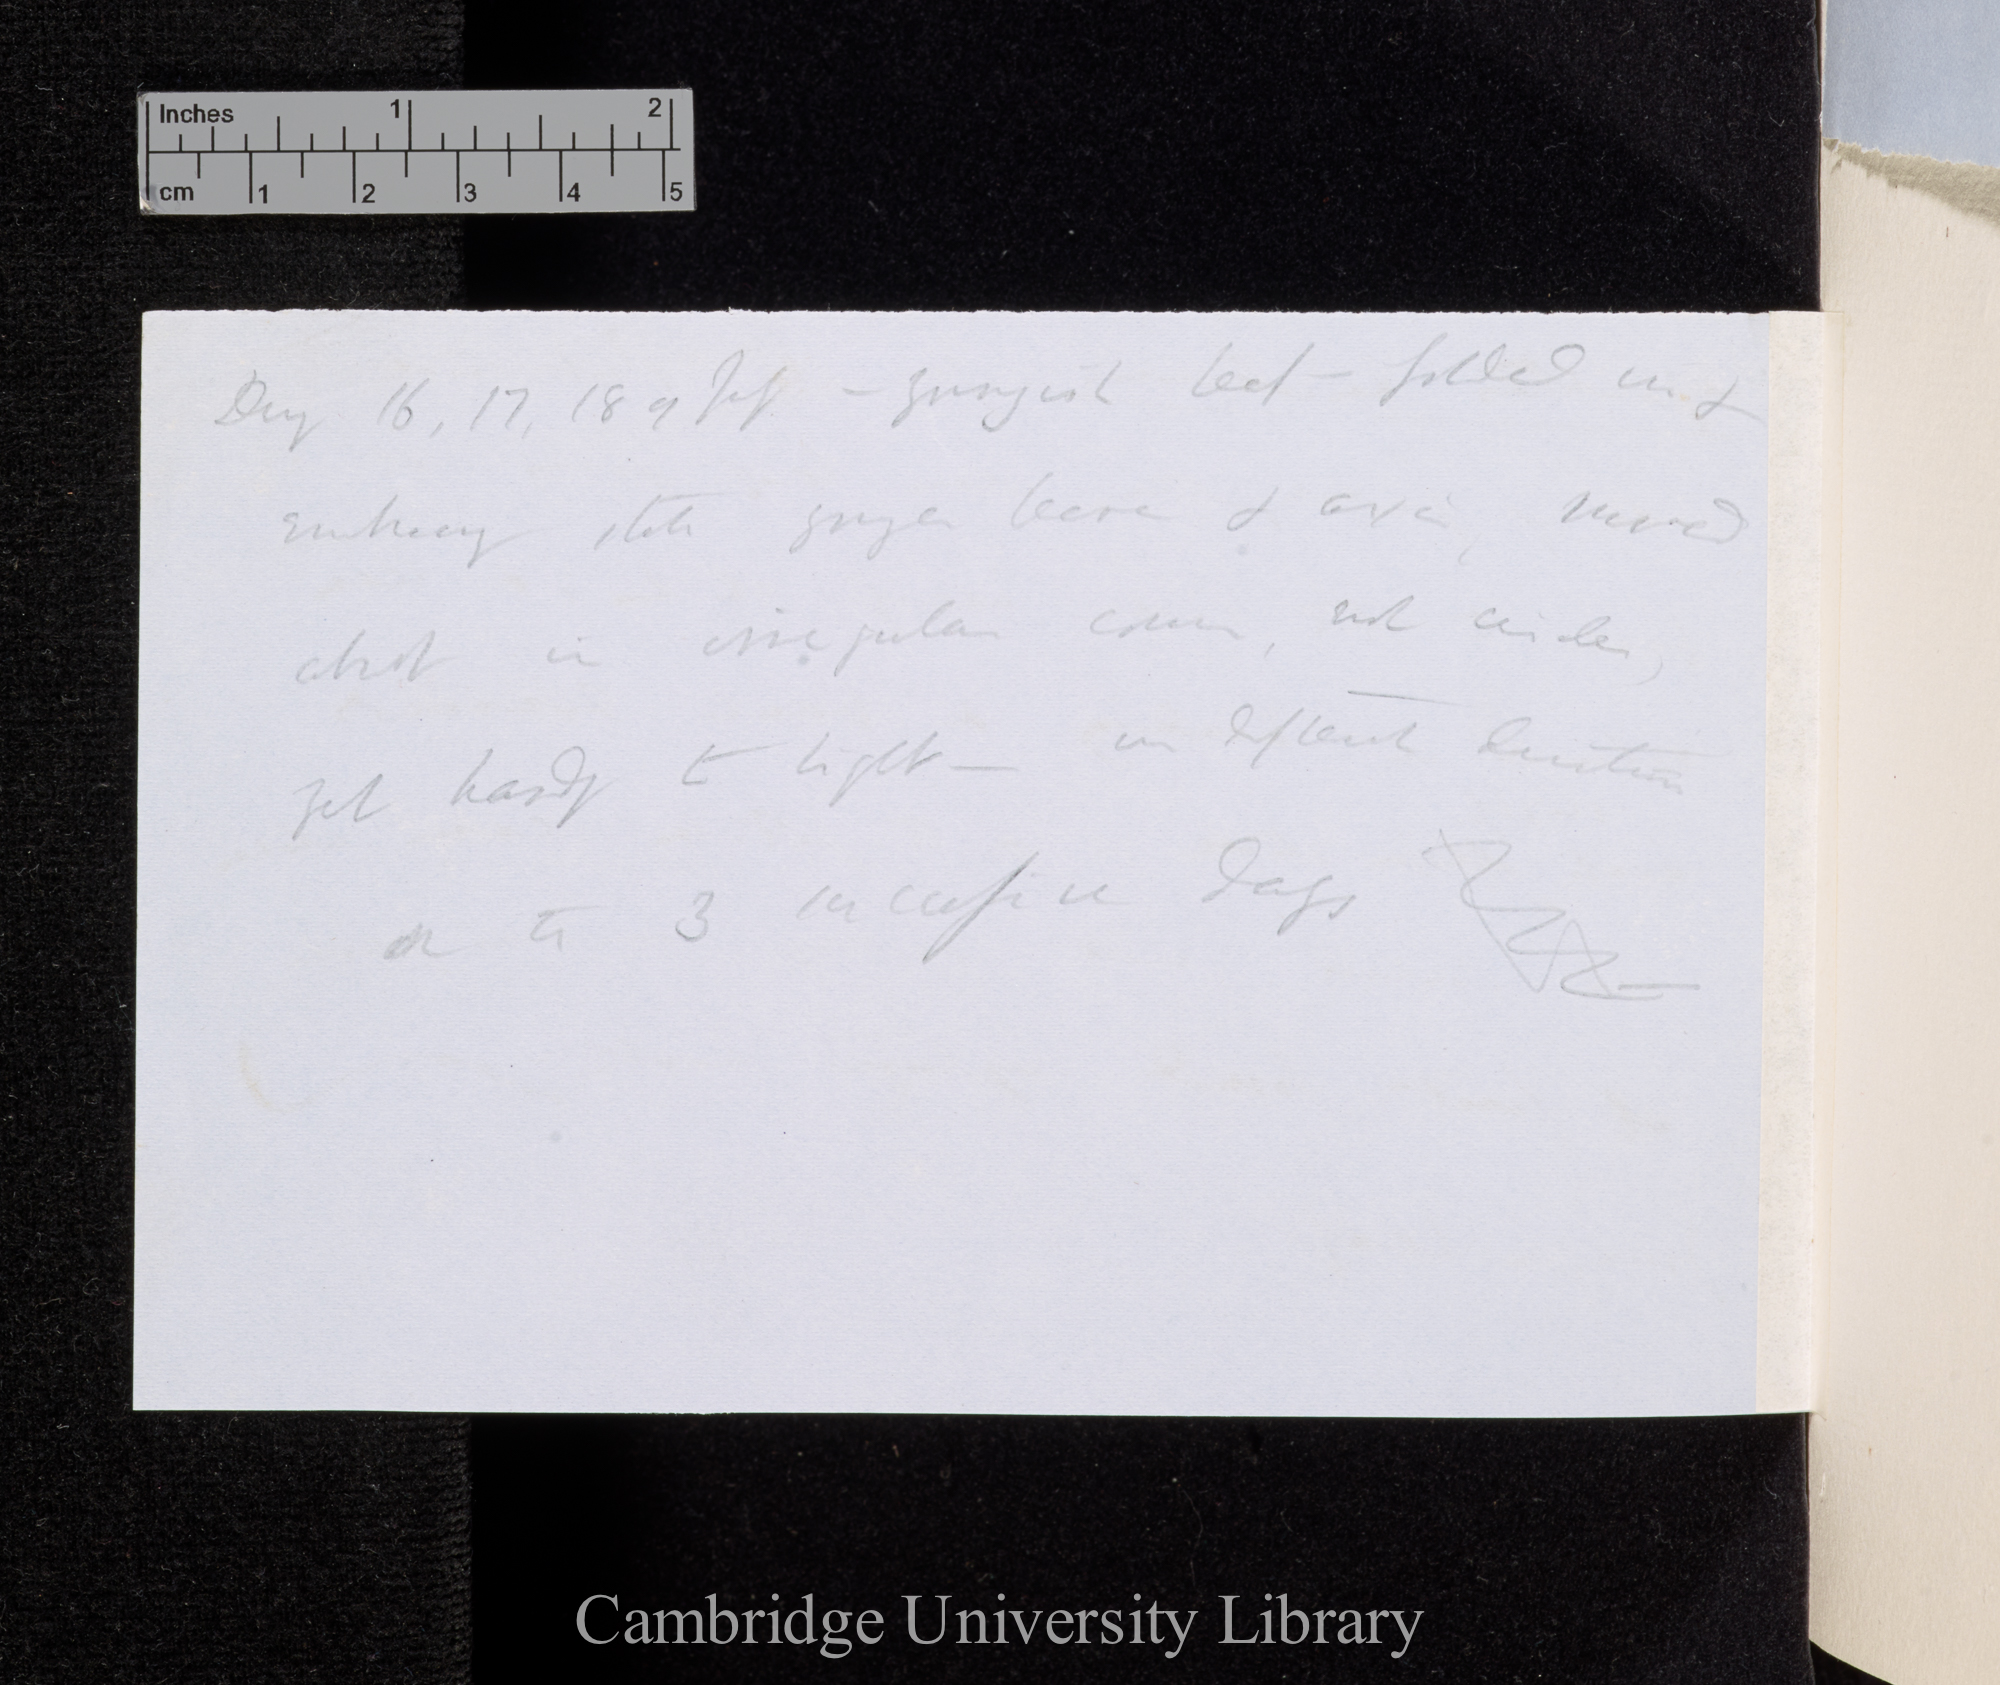 Inches 1 2
cm 1 2 3 4 5
16, 17, 18 of – youngish leaf – folded in &
embracing still younger leaves & axis, moved
about in irregular course, not circles,
yet hardly to light — in different directions
on the 3 successive days
Cambridge University Library